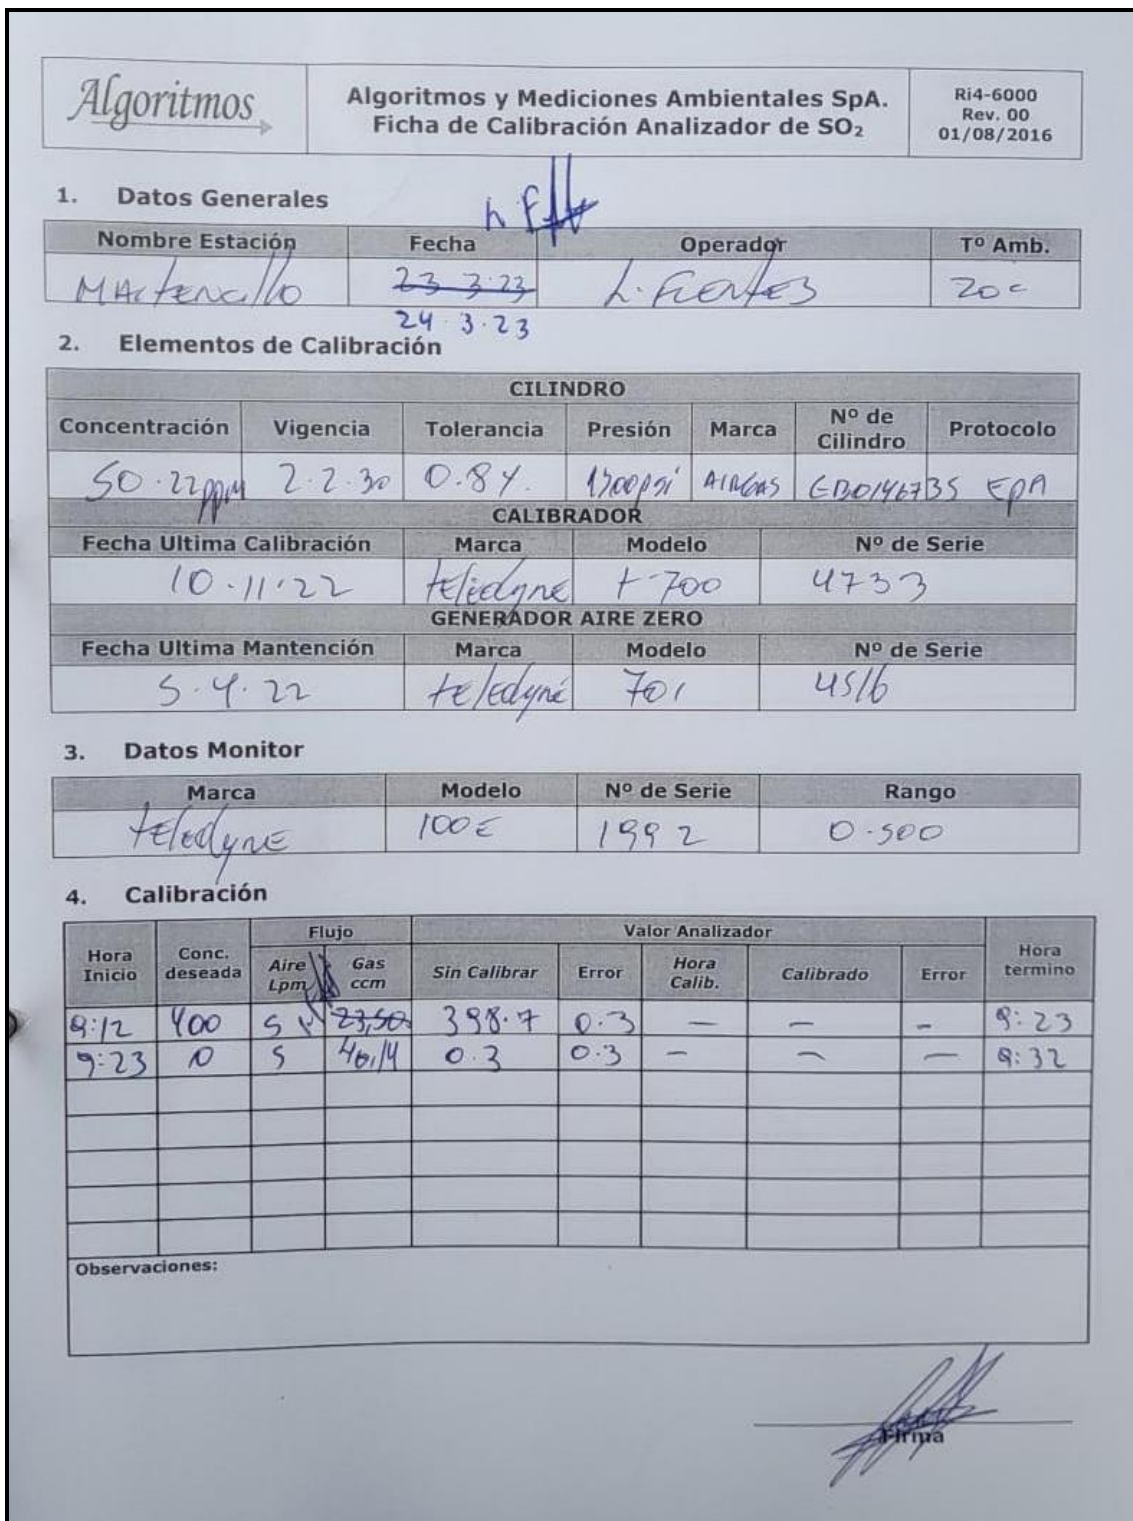 Algoritmos
Algoritmos y Mediciones Ambientales SpA.
Ficha de Calibración Analizador de SO₂
Ri4-6000
Rev. 00
01/08/2016
1. Datos Generales
Nombre Estación Fecha Operador Tº Amb.
Maitencillo 23 3.23 L. Fuentes 20 c
24.3.23
2. Elementos de Calibración
CILINDRO
Concentración Vigencia Tolerancia Presión Marca Nº de Cilindro Protocolo
50.22 ppm 2.2.30 0.8%. psi AIRGAS EB0146735 EPA
CALIBRADOR
Fecha Ultima Calibración Marca Modelo Nº de Serie
10.11.22 teledyne t-700 4733
GENERADOR AIRE ZERO
Fecha Ultima Mantención Marca Modelo Nº de Serie
5.4.22 teledyne 701 4516
3. Datos Monitor
Marca Modelo Nº de Serie Rango
teledyne 100E 1992 0-500
4. Calibración
Hora Inicio Conc. deseada Flujo Valor Analizador Hora termino
Aire Lpm Gas ccm Sin Calibrar Error Hora Calib. Calibrado Error
9:12 400 5 23,50 398.7 0.3 — — — 9:23
9:23 0 5 40,14 0.3 0.3 — — — 9:32
Observaciones:
Firma